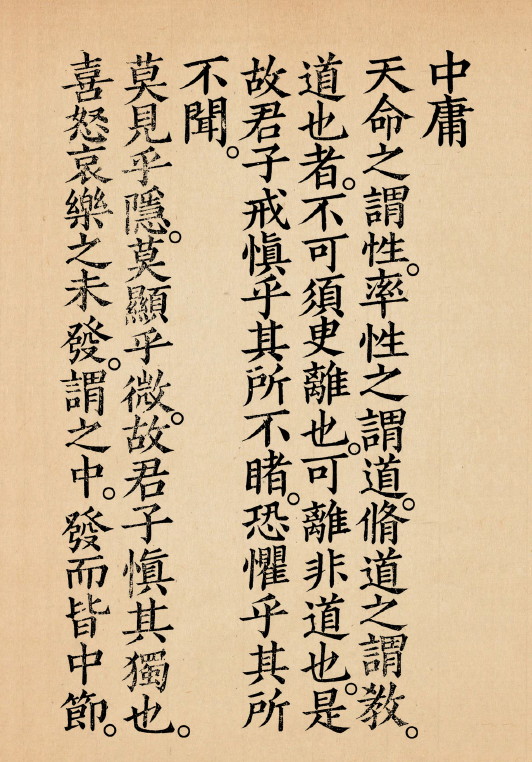 中庸
天命之謂性。率性之謂道。脩道之謂敎。
道也者。不可須臾離也。可離非道也。是
故君子戒愼乎其所不睹。恐懼乎其所
不聞。
莫見乎隱。莫顯乎微。故君子愼其獨也。
喜怒哀樂之未發。謂之中。發而皆中節。